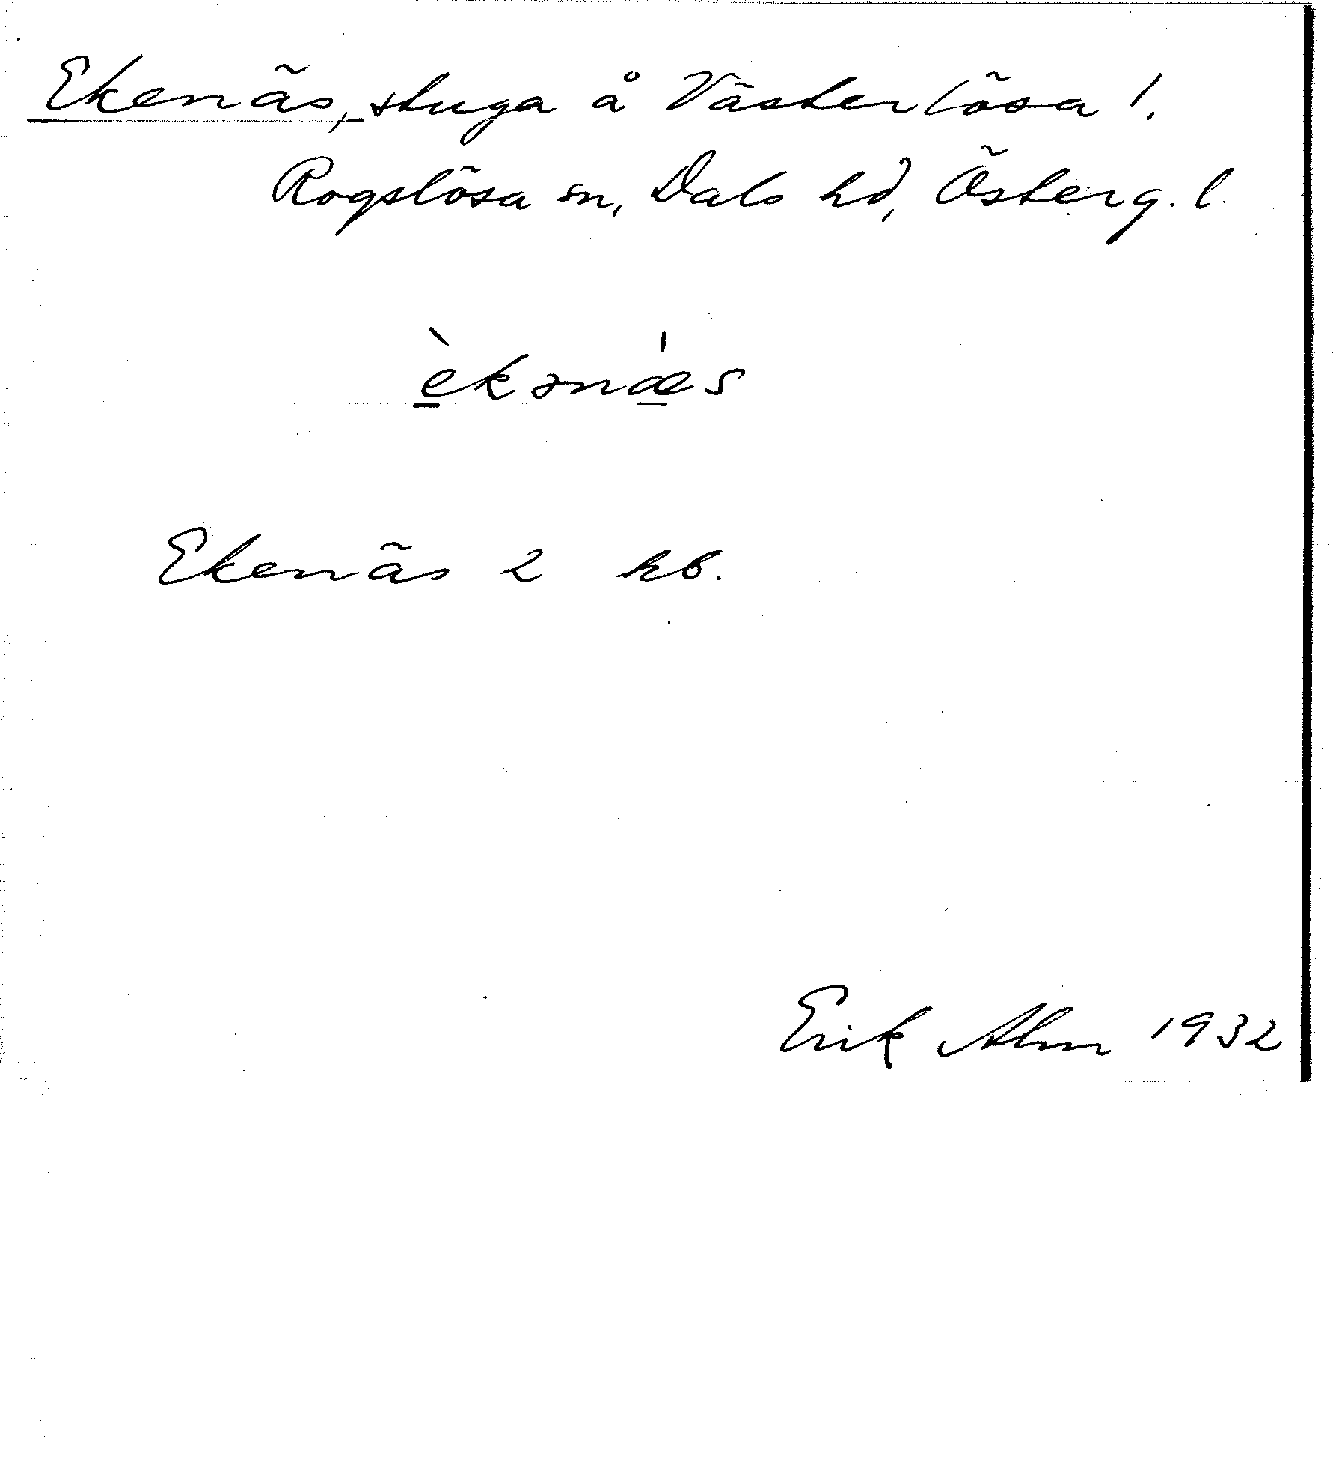 Ekenäs, stuga å Västerlösa 1.
Rogslösa sn, Dals hd, Österg. l.
èkənæ̍s
Ekenäs 2 hb.
Erik Alm 1932